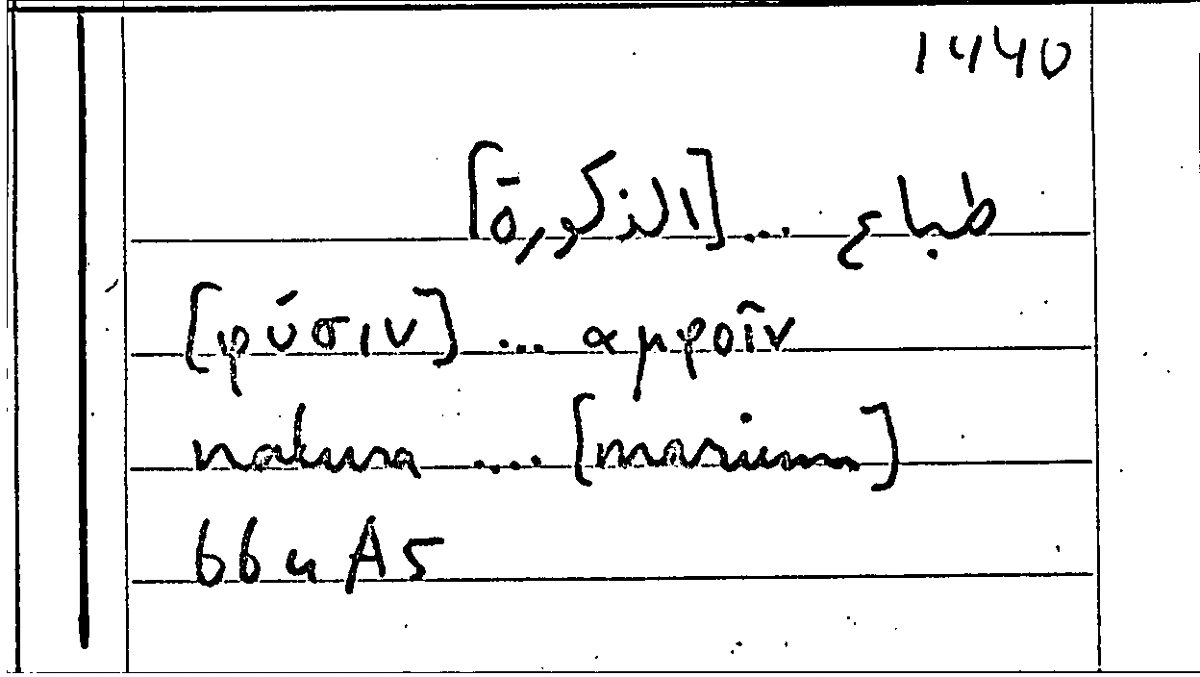 1440
طباع ... [الذكورة]
[φύσιν] ... αμφοῖν
natura .... [marium]
66a A5